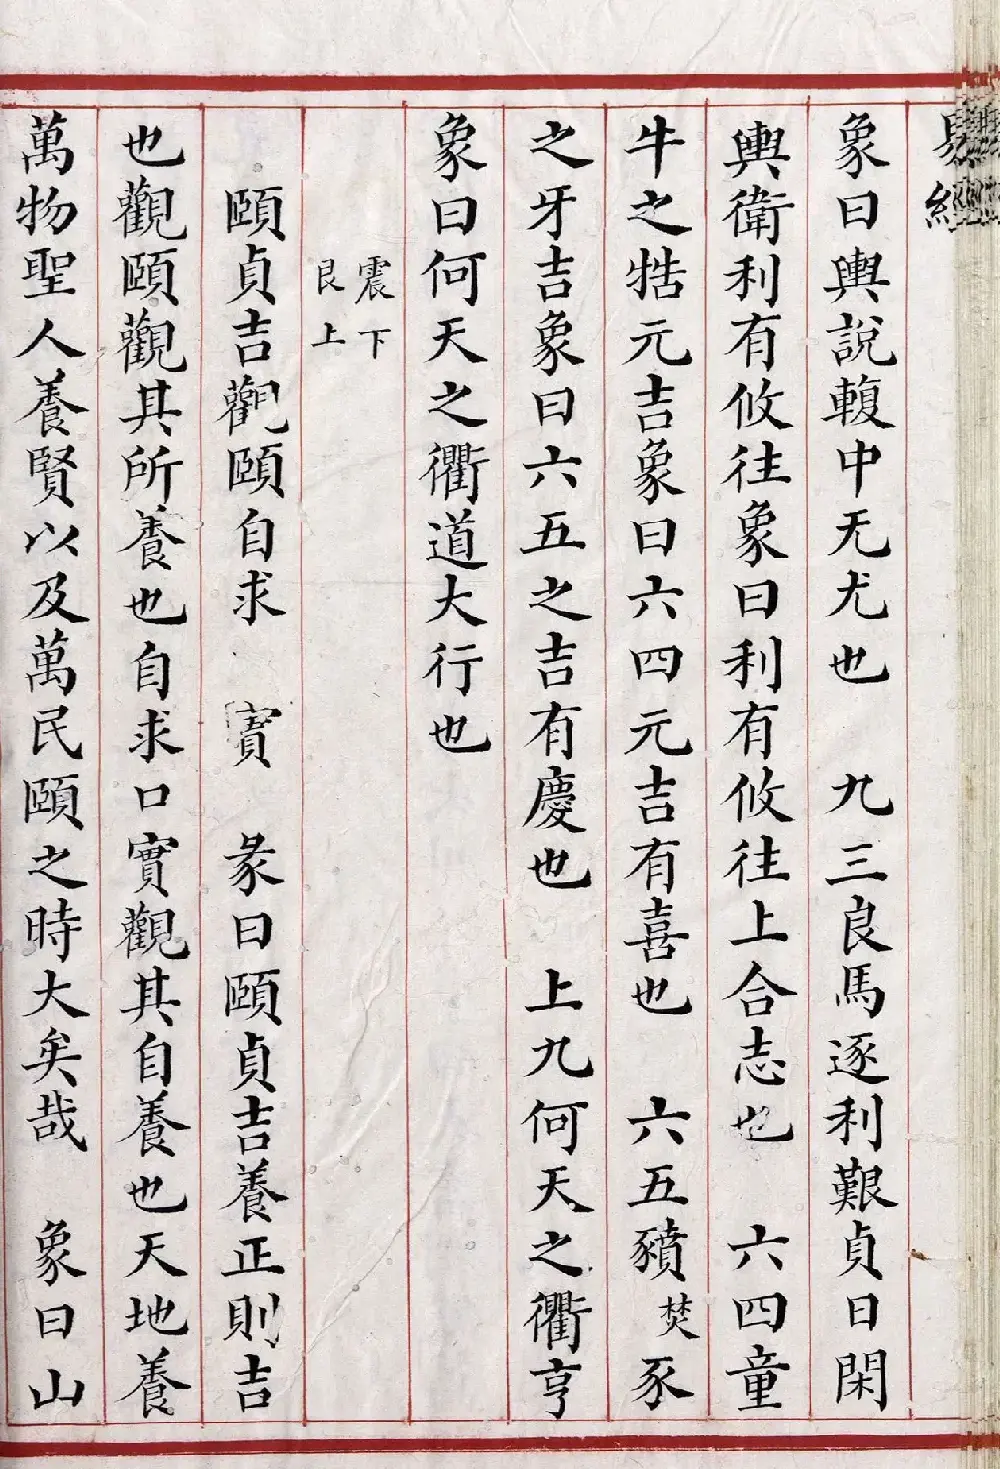 易經
象曰輿說輹中无尤也 九三良馬逐利艱貞日閑
輿衛利有攸往象曰利有攸往上合志也 六四童
牛之牿元吉象曰六四元吉有喜也 六五豶焚豕
之牙吉象曰六五之吉有慶也 上九何天之衢亨
象曰何天之衢道大行也
震下
艮上
頤貞吉觀頤自求 實 彖曰頤貞吉養正則吉
也觀頤觀其所養也自求口實觀其自養也天地養
萬物聖人養賢以及萬民頤之時大矣哉 象曰山